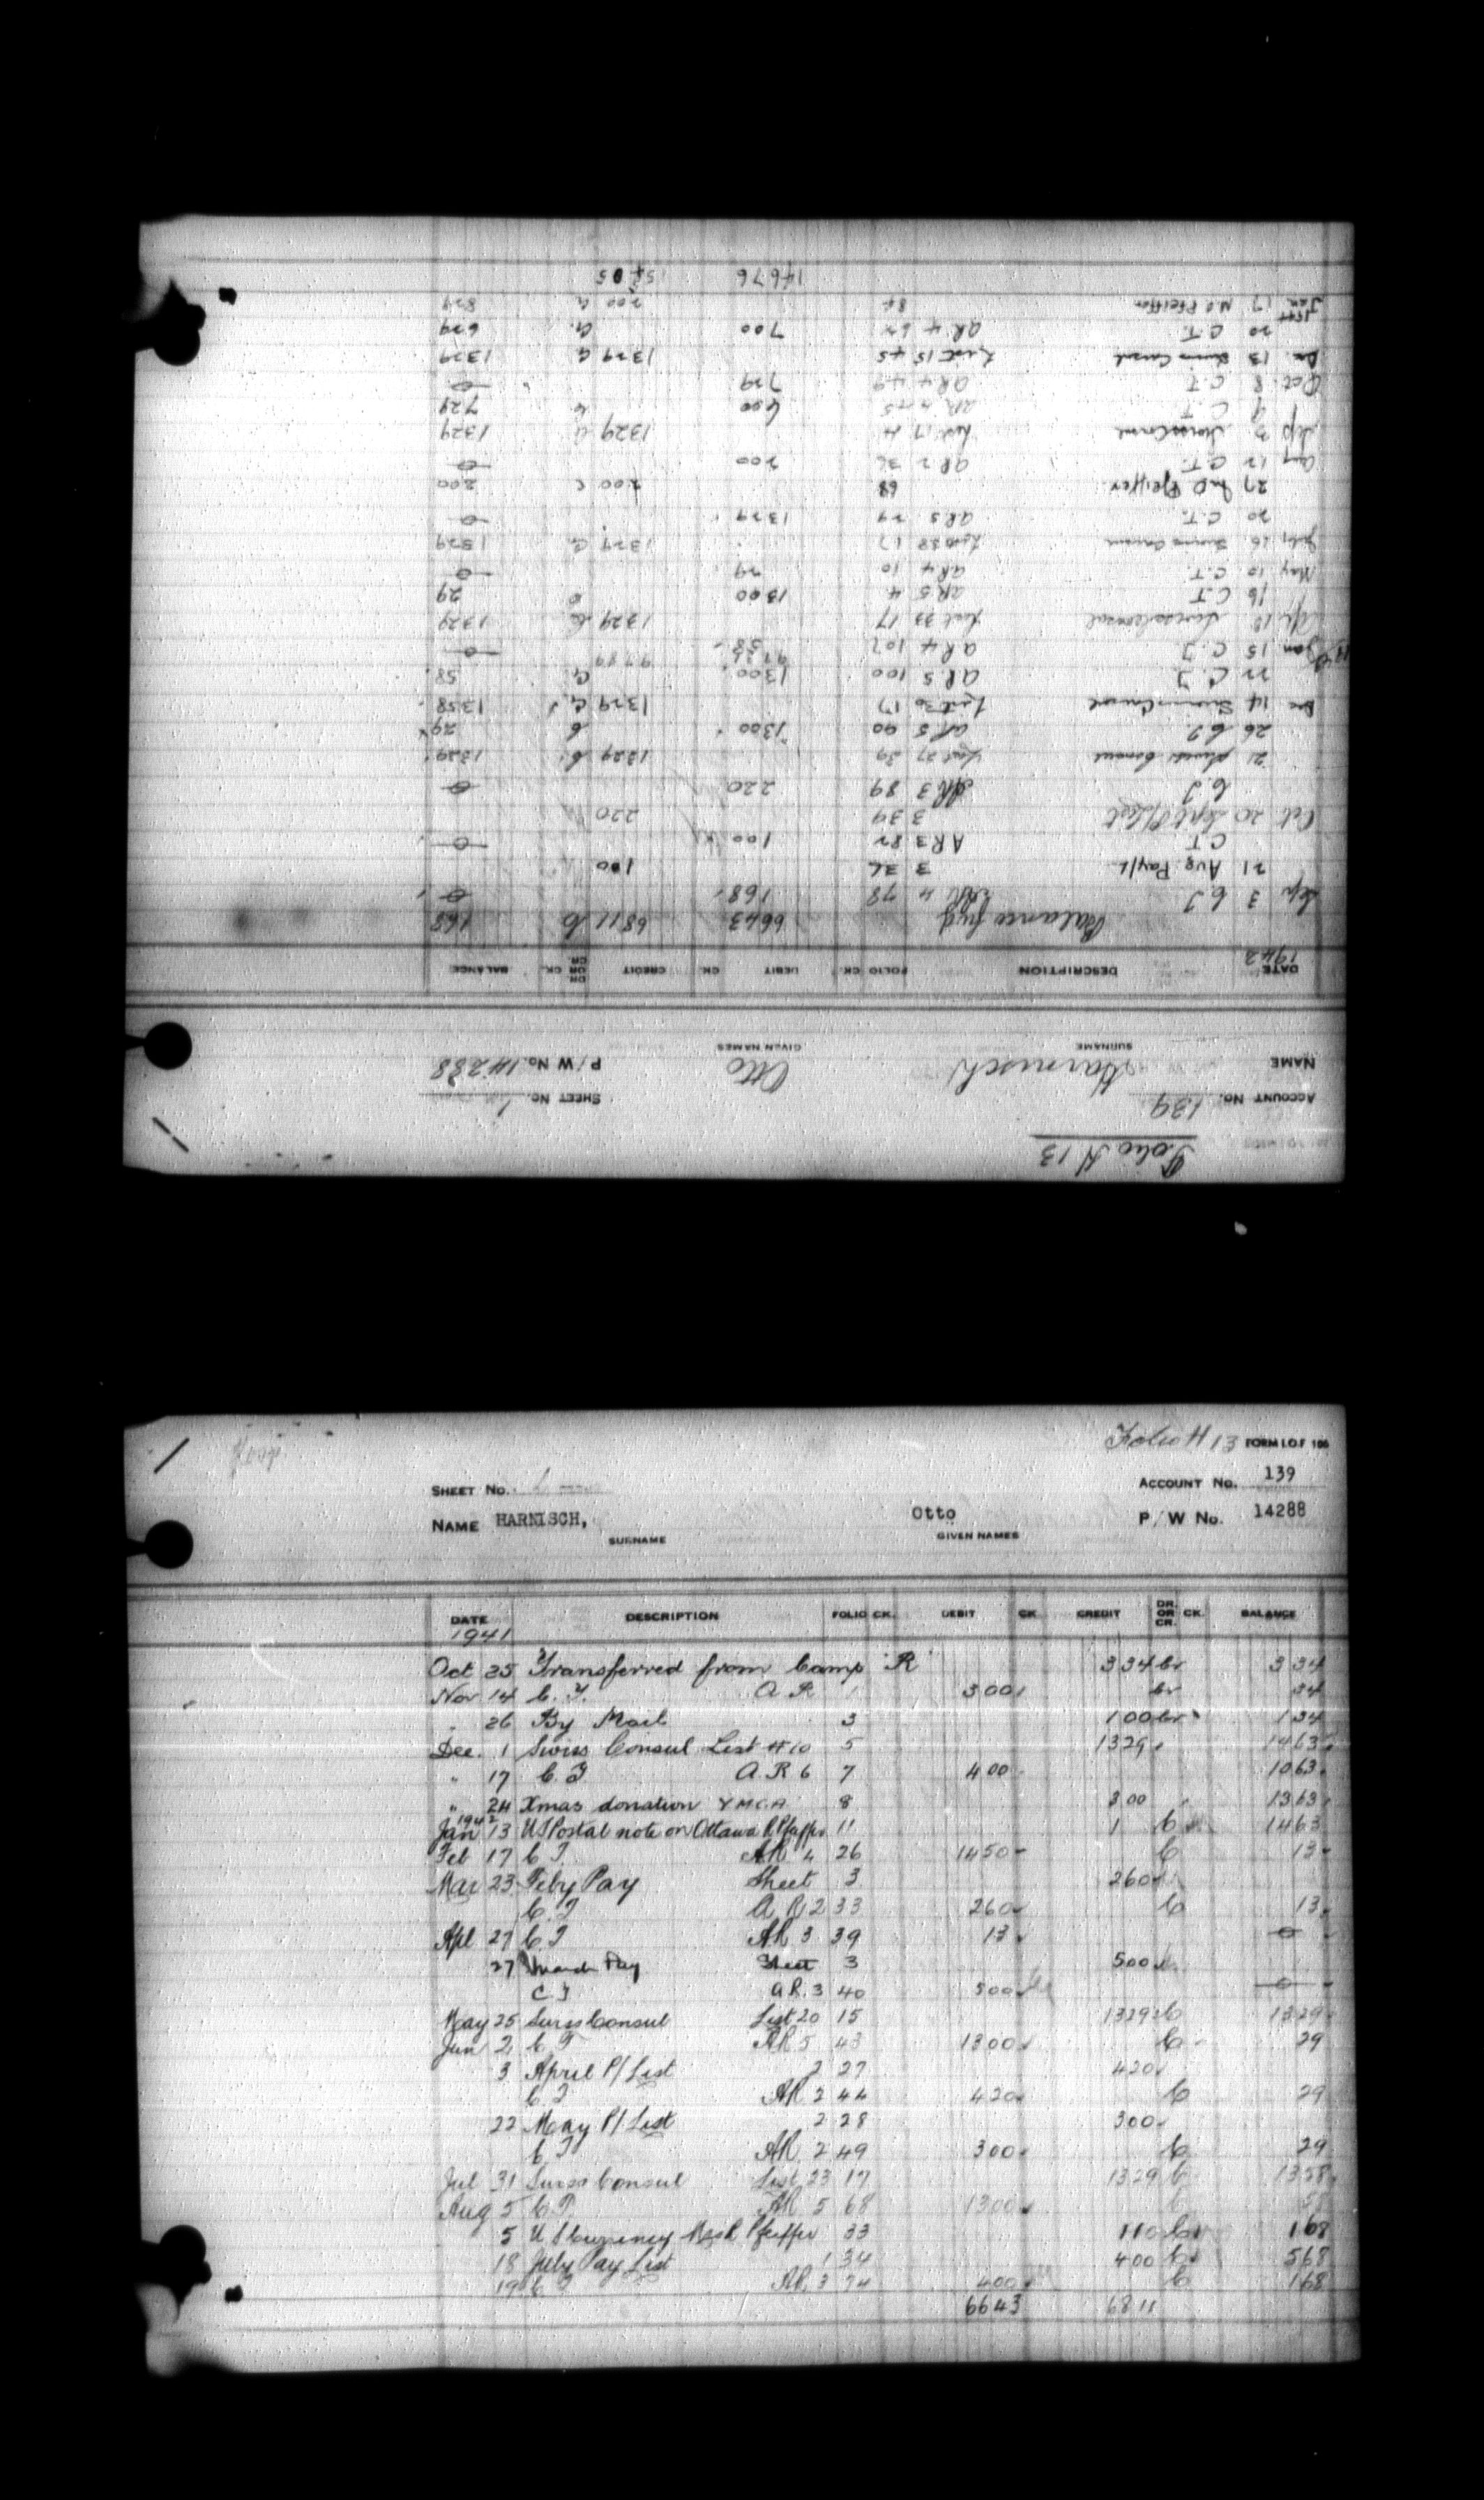 Folio H 13
ACCOUNT NO. 139 SHEET NO. 1
NAME Harnisch Otto P/W No. 14288
SURNAME GIVEN NAMES
DATE DESCRIPTION FOLIO CK. DEBIT CK. CREDIT DR. OR CR. CK. BALANCE
1942
Balance fwd 6643 6811 C 168
Sep 3 C.T 4 78 168 0
21 Aug. Pay/L 3 36 100
C T AR 3 82 100 0
Oct 20 Sept P/List 3 39 220
C.T AR 3 89 220 0
21 Swiss Consul List 27 39 1329 C 1329
26 C.T AR 5 90 1300 C 29
Dec 14 Swiss Consul List 30 17 1329 C 1358
22 C.T AR 5 100 1300 C 58
Jan 15 C.T AR 4 107 58 0
Swiss Consul List 33 17 1329 C 1329
16 C.T AR 5 4 1300 29
May 10 C.T. AR 4 10 29 0
July 16 Swiss Consul 17 1329 C 1329
20 C.T. AR 5 29 1329 0
27 Pfeiffer 68 200 C 200
Aug 12 C.T. AR 2 36 200 0
Sep 3 Swiss Consul List 17 4 1329 C 1329
9 C.T AR 4 45 600 C 729
Oct. 8 C.T AR 4 49 729 0
Dec. 13 Swiss Consul List 15 45 1329 C 1329
20 C.T. AR 4 62 700 C. 629
1944
Jan 17 Pfeiffer 84 200 C 829
14676
Folio H 13 FORM I.O.F 106
SHEET NO. 1 ACCOUNT NO. 139
NAME HARNISCH, Otto P/W No. 14288
SURNAME GIVEN NAMES
DATE DESCRIPTION FOLIO CK. DEBIT CK. CREDIT DR. OR CR. CK. BALANCE
1941
Oct 25 Transferred from Camp "R" 334 Cr 334
Nov 14 C.T. A R 1 300 Cr 34
" 26 By Mail 3 100 Cr 134
Dec. 1 Swiss Consul List #10 5 1329 1463
" 17 C.T A.R 6 7 400 1063
" 24 Xmas donation YMCA 8 300 1363
1942
Jan 13 US Postal note on Ottawa 11 1 C 1463
Feb 17 C T. AR 4 26 1450 C 13
Mar 23 Feby Pay Sheet 3 260
C.T A R 2 33 260 C 13
Apl 27 C.T AR 3 39 13 0
27 March Pay Sheet 3 500
C T AR. 3 40 500 0
May 25 Swiss Consul List 20 15 1329 C 1329
Jun 2 C T AR 5 43 1300 C 29
3 April P/List 2 27 420
C T AR 2 44 420 C 29
22 May P/List 2 28 300
C T AR 2 49 300 C 29
Jul 31 Swiss Consul List 23 17 1329 C 1358
Aug 5 C.T. AR 5 68 1300 C 58
5 US Currency Pfeiffer 33 110 C 168
18 July Pay List 1 34 400 C 568
19 C T AR 3 74 400 C 168
6643 6811